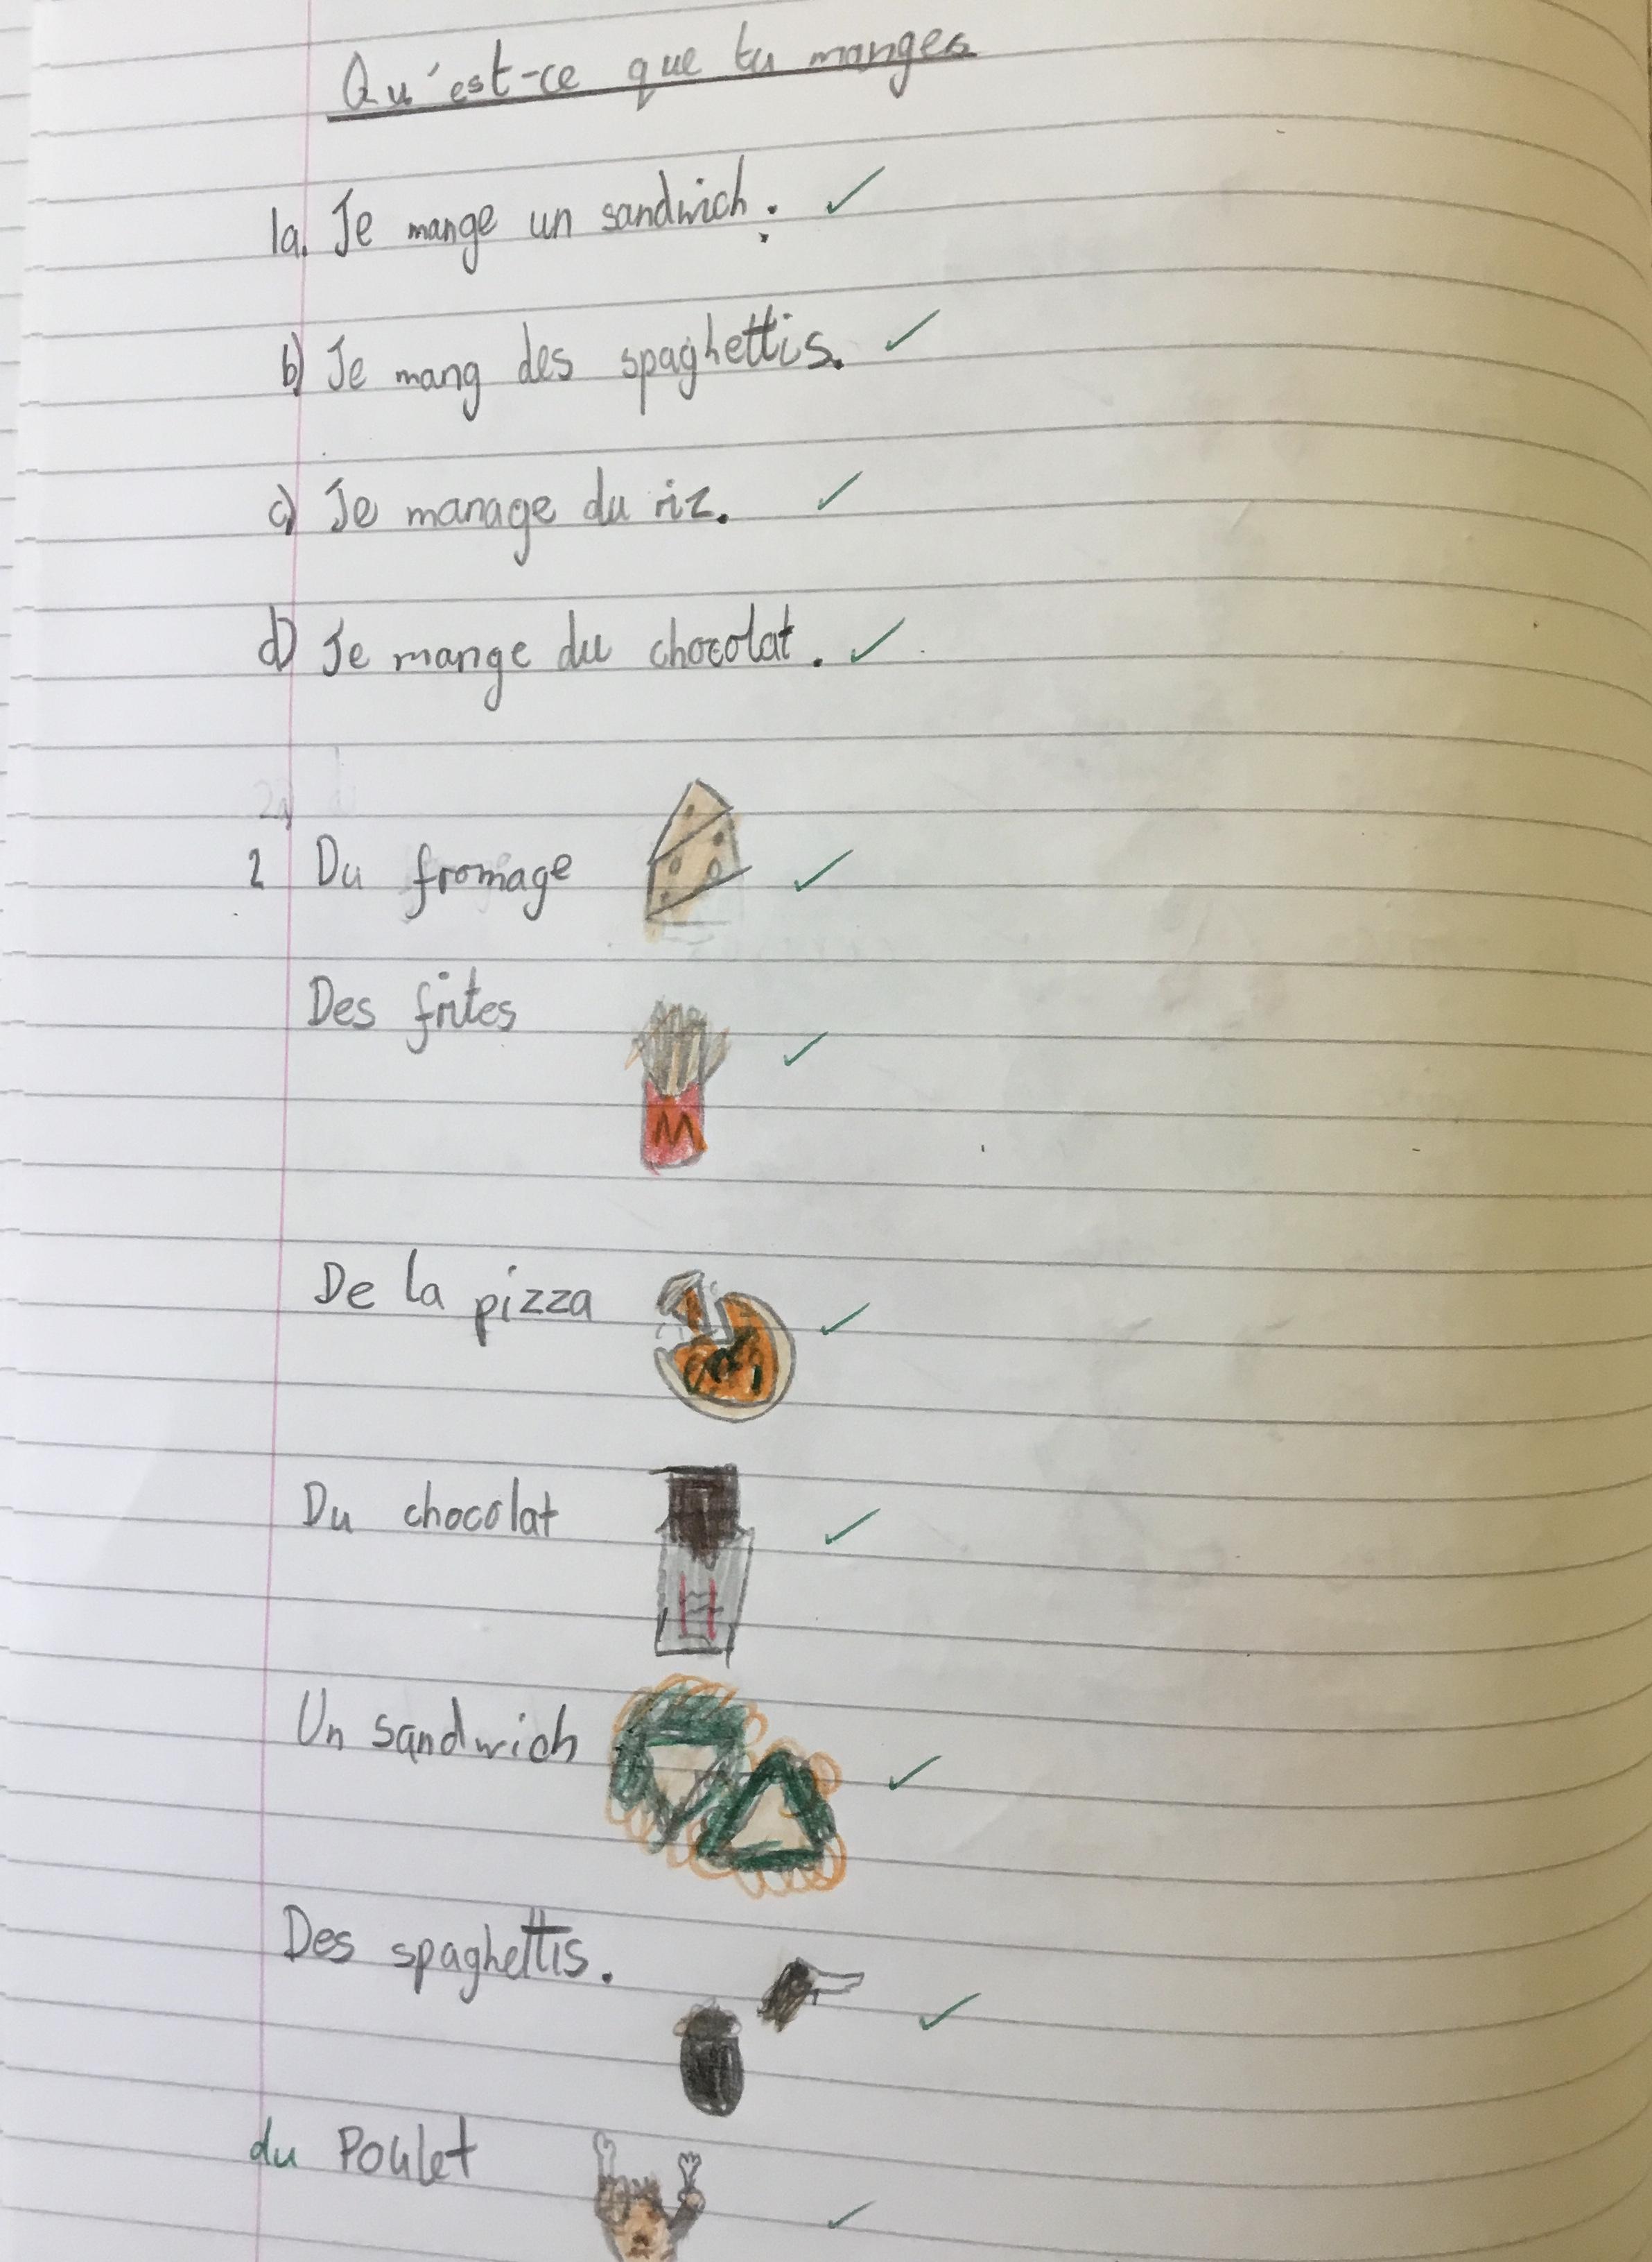 Qu'est-ce que tu manges
1a. Je mange un sandwich.
b) Je mang des spaghettis.
c) Je manage du riz.
d) Je mange du chocolat.
2a)
2 Du fromage
Des frites
M
De la pizza
Du chocolat
Un sandwich
Des spaghettis.
du Poulet